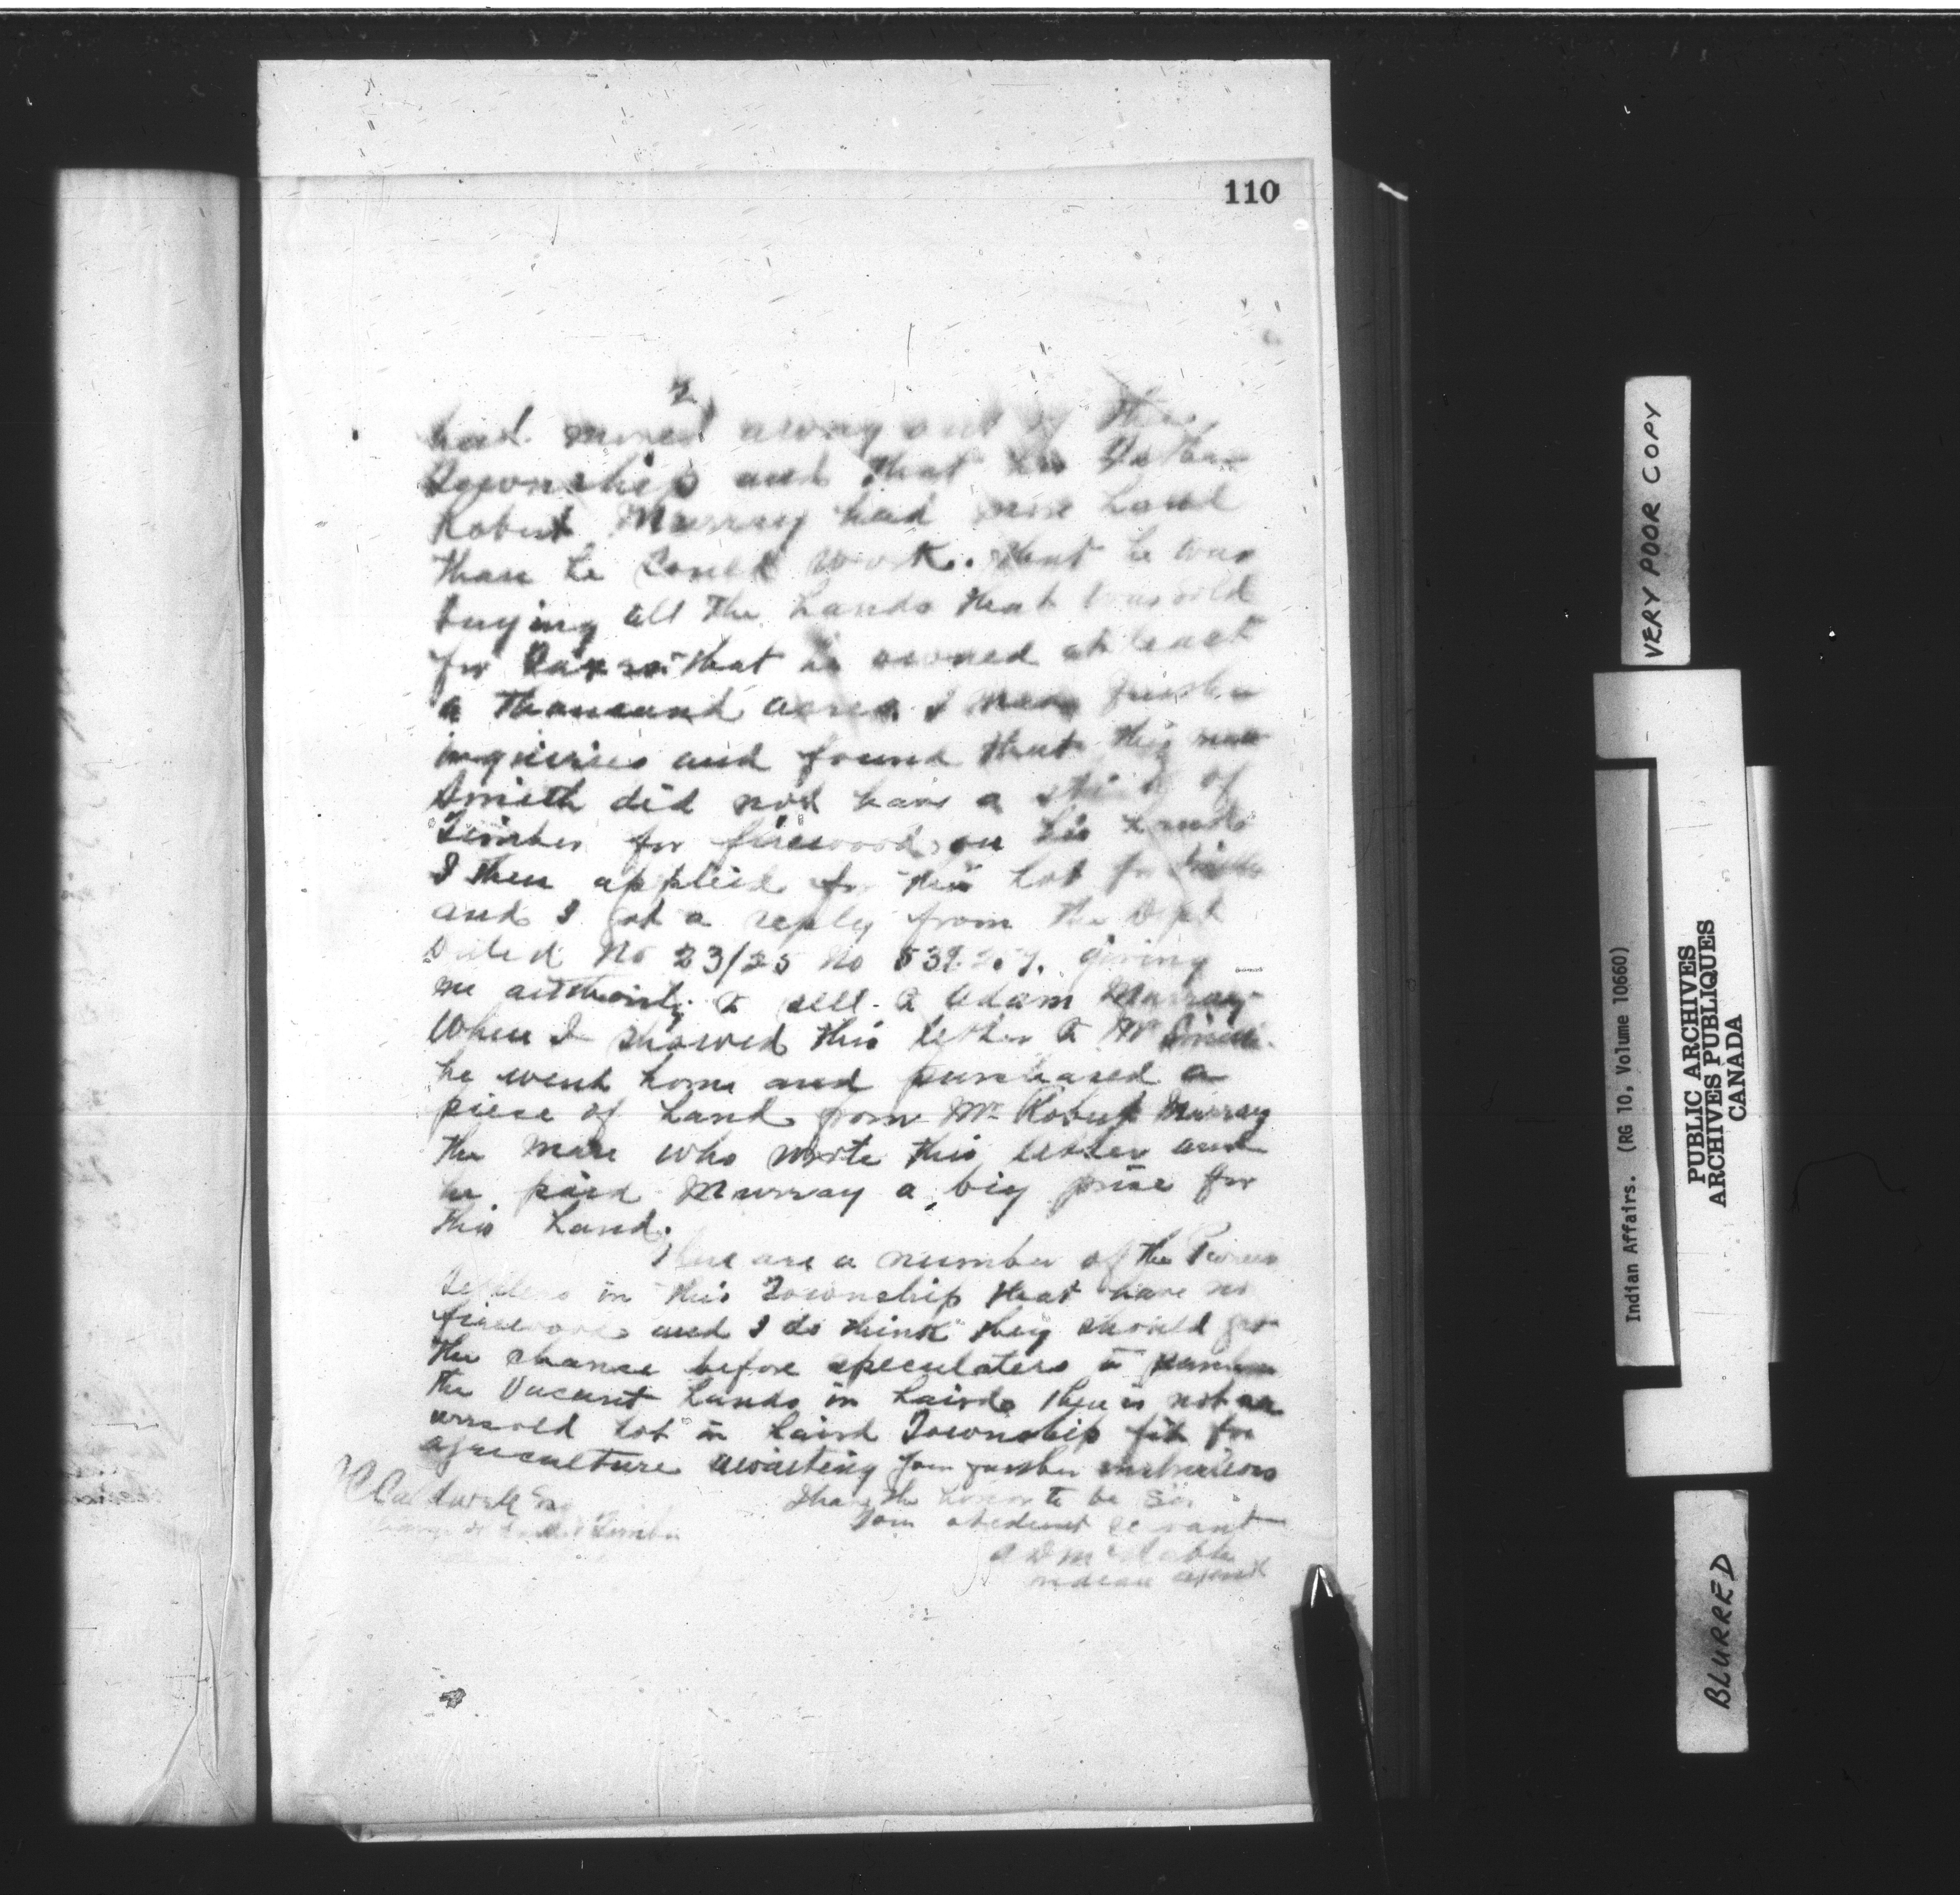 110
2
had moved away out of this
Township and that his Father
Robert Murray had more Land
than he Could work. that he was
buying all the Lands that was sold
for Taxes. that he owned at least
a thousand acres. I made further
inquiries and found that this man
Smith did not have a stick of
Timber for firewood on his Land
I then applied for this Lot for
and I got a reply from the Dept
Dated No 23/25 No giving
me authority to sell to Adam Murray
When I showed this letter to Mr Smith
he went home and purchased a
piece of Land from Mr Robert Murray
the man who wrote this letter and
he paid Murray a big price for
this Land.
There are a number of the Pioneer
Settlers in this Township that have no
firewood and I do think they should get
the chance before speculaters to purchase
the Vacant Lands in Laird. there is not an
unsold Lot in Laird Township fit for
agruculture awaiting your further instructions
I have the honor to be Sir
Your obedient servant
A D McNabb
Indian Agent
J C Caldwell Esq
Lands & Timber
VERY POOR COPY
Indian Affairs. (RG 10, Volume 10660)
PUBLIC ARCHIVES
ARCHIVES PUBLIQUES
CANADA
BLURRED